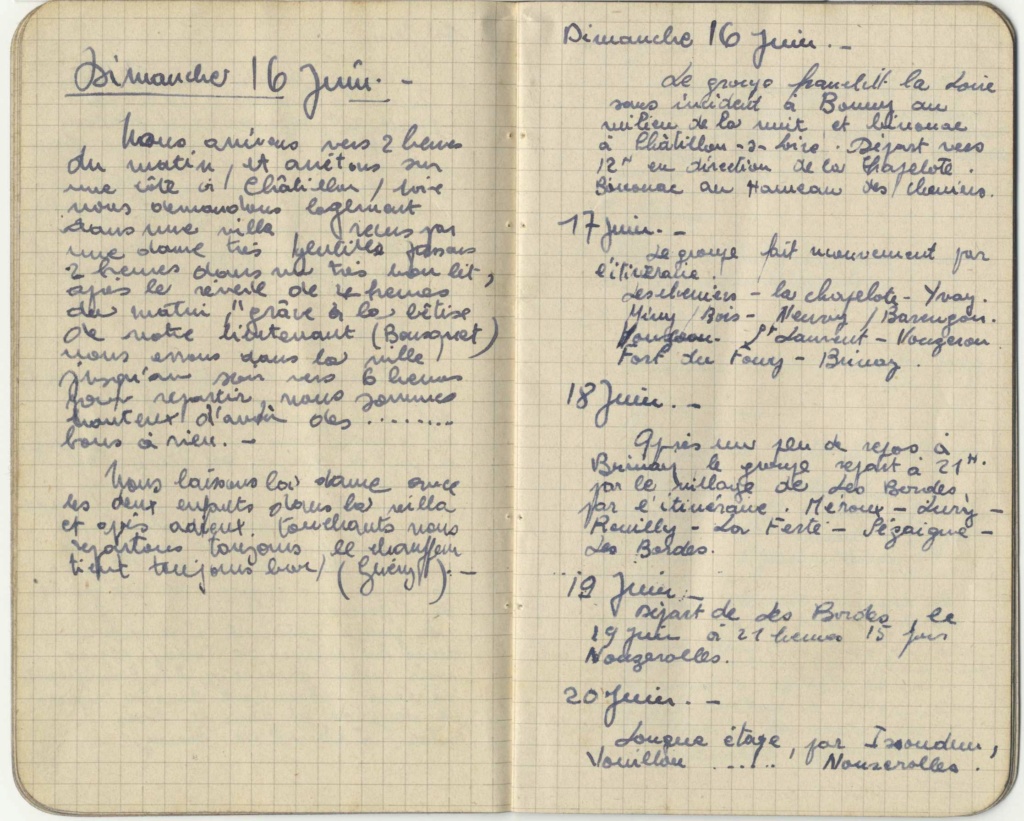 Dimanche 16 Juin. -
Nous arrivons vers 2 heures
du matin, et arrêtons sur
une côte à Châtillon / Loire
nous demandons logement
dans une villa reçus par
une dame très gentille passons
2 heures dans un très bon lit,
après le réveil de 4 heures
du matin, "grâce à la bêtise
de notre lieutenant (Bousquet)
nous errons dans la ville
jusqu'au soir vers 6 heures
pour repartir, nous sommes
honteux d'avoir des ........
bons à rien. -
Nous laissons la dame avec
ses deux enfants dans la villa
et après adieux touchants nous
repartons toujours le chauffeur
tient toujours bon, (Guéry). -
Dimanche 16 Juin. -
Le groupe franchit la Loire
sans incident à Bonny au
milieu de la nuit et bivouac
à Châtillon-s-Loire. Départ vers
12H en direction de la Chapelote.
Bivouac au Hameau des cheniers.
17 Juin. -
Le groupe fait mouvement par
l'itinéraire.
Les cheniers - la chapelote - Yvoy.
Méry / Bois - Neuvy / Barengon.
Vouzeron - St Laurent - Vouzeron
Fort du Foëcy - Brinay.
18 Juin. -
Après un peu de repos à
Brinay le groupe repart à 21H.
par le village de Les Bordes,
par l'itinéraire. Méreux - Lury -
Rouilly - La Ferté - Pézaigue -
Les Bordes.
19 Juin. -
Départ de Les Bordes, le
19 Juin à 21 heures 15 pour
Nouzerolles.
20 Juin. -
Longue étape, par Issoudun,
Vouillon ..... Nouzerolles.